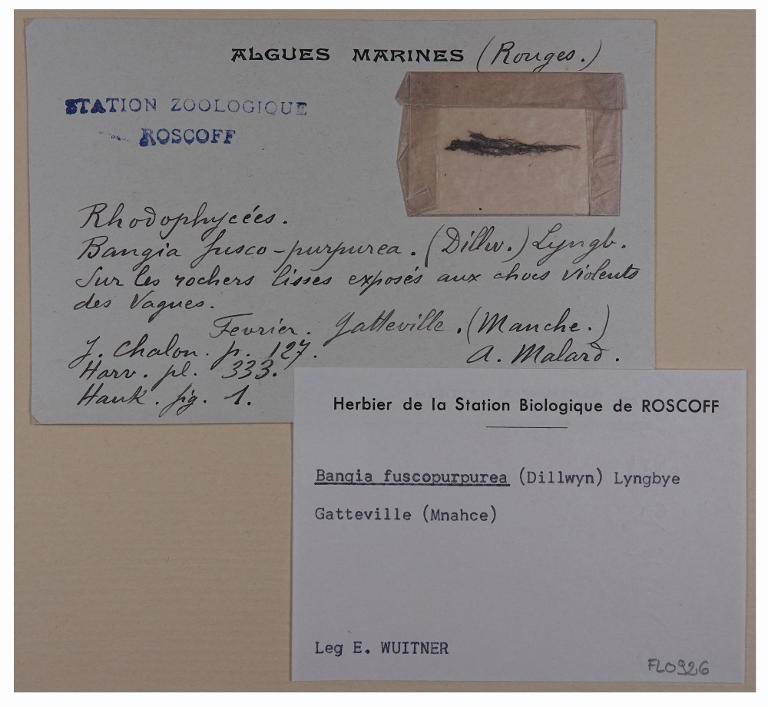 ALGUES MARINES (Rouges.)
STATION ZOOLOGIQUE
ROSCOFF
Rhodophycées.
Bangia fusco-purpurea. (Dillw.) Lyngb.
Sur les rochers lisses exposés aux chocs violents
des Vagues.
Fevrier. Gatteville. (Manche.)
J. Chalon. p. 127.
A. Malard.
Harv. pl. 333.
Hauk. fig. 1.
Herbier de la Station Biologique de ROSCOFF
Bangia fuscopurpurea (Dillwyn) Lyngbye
Gatteville (Mnahce)
Leg E. WUITNER
FLO926